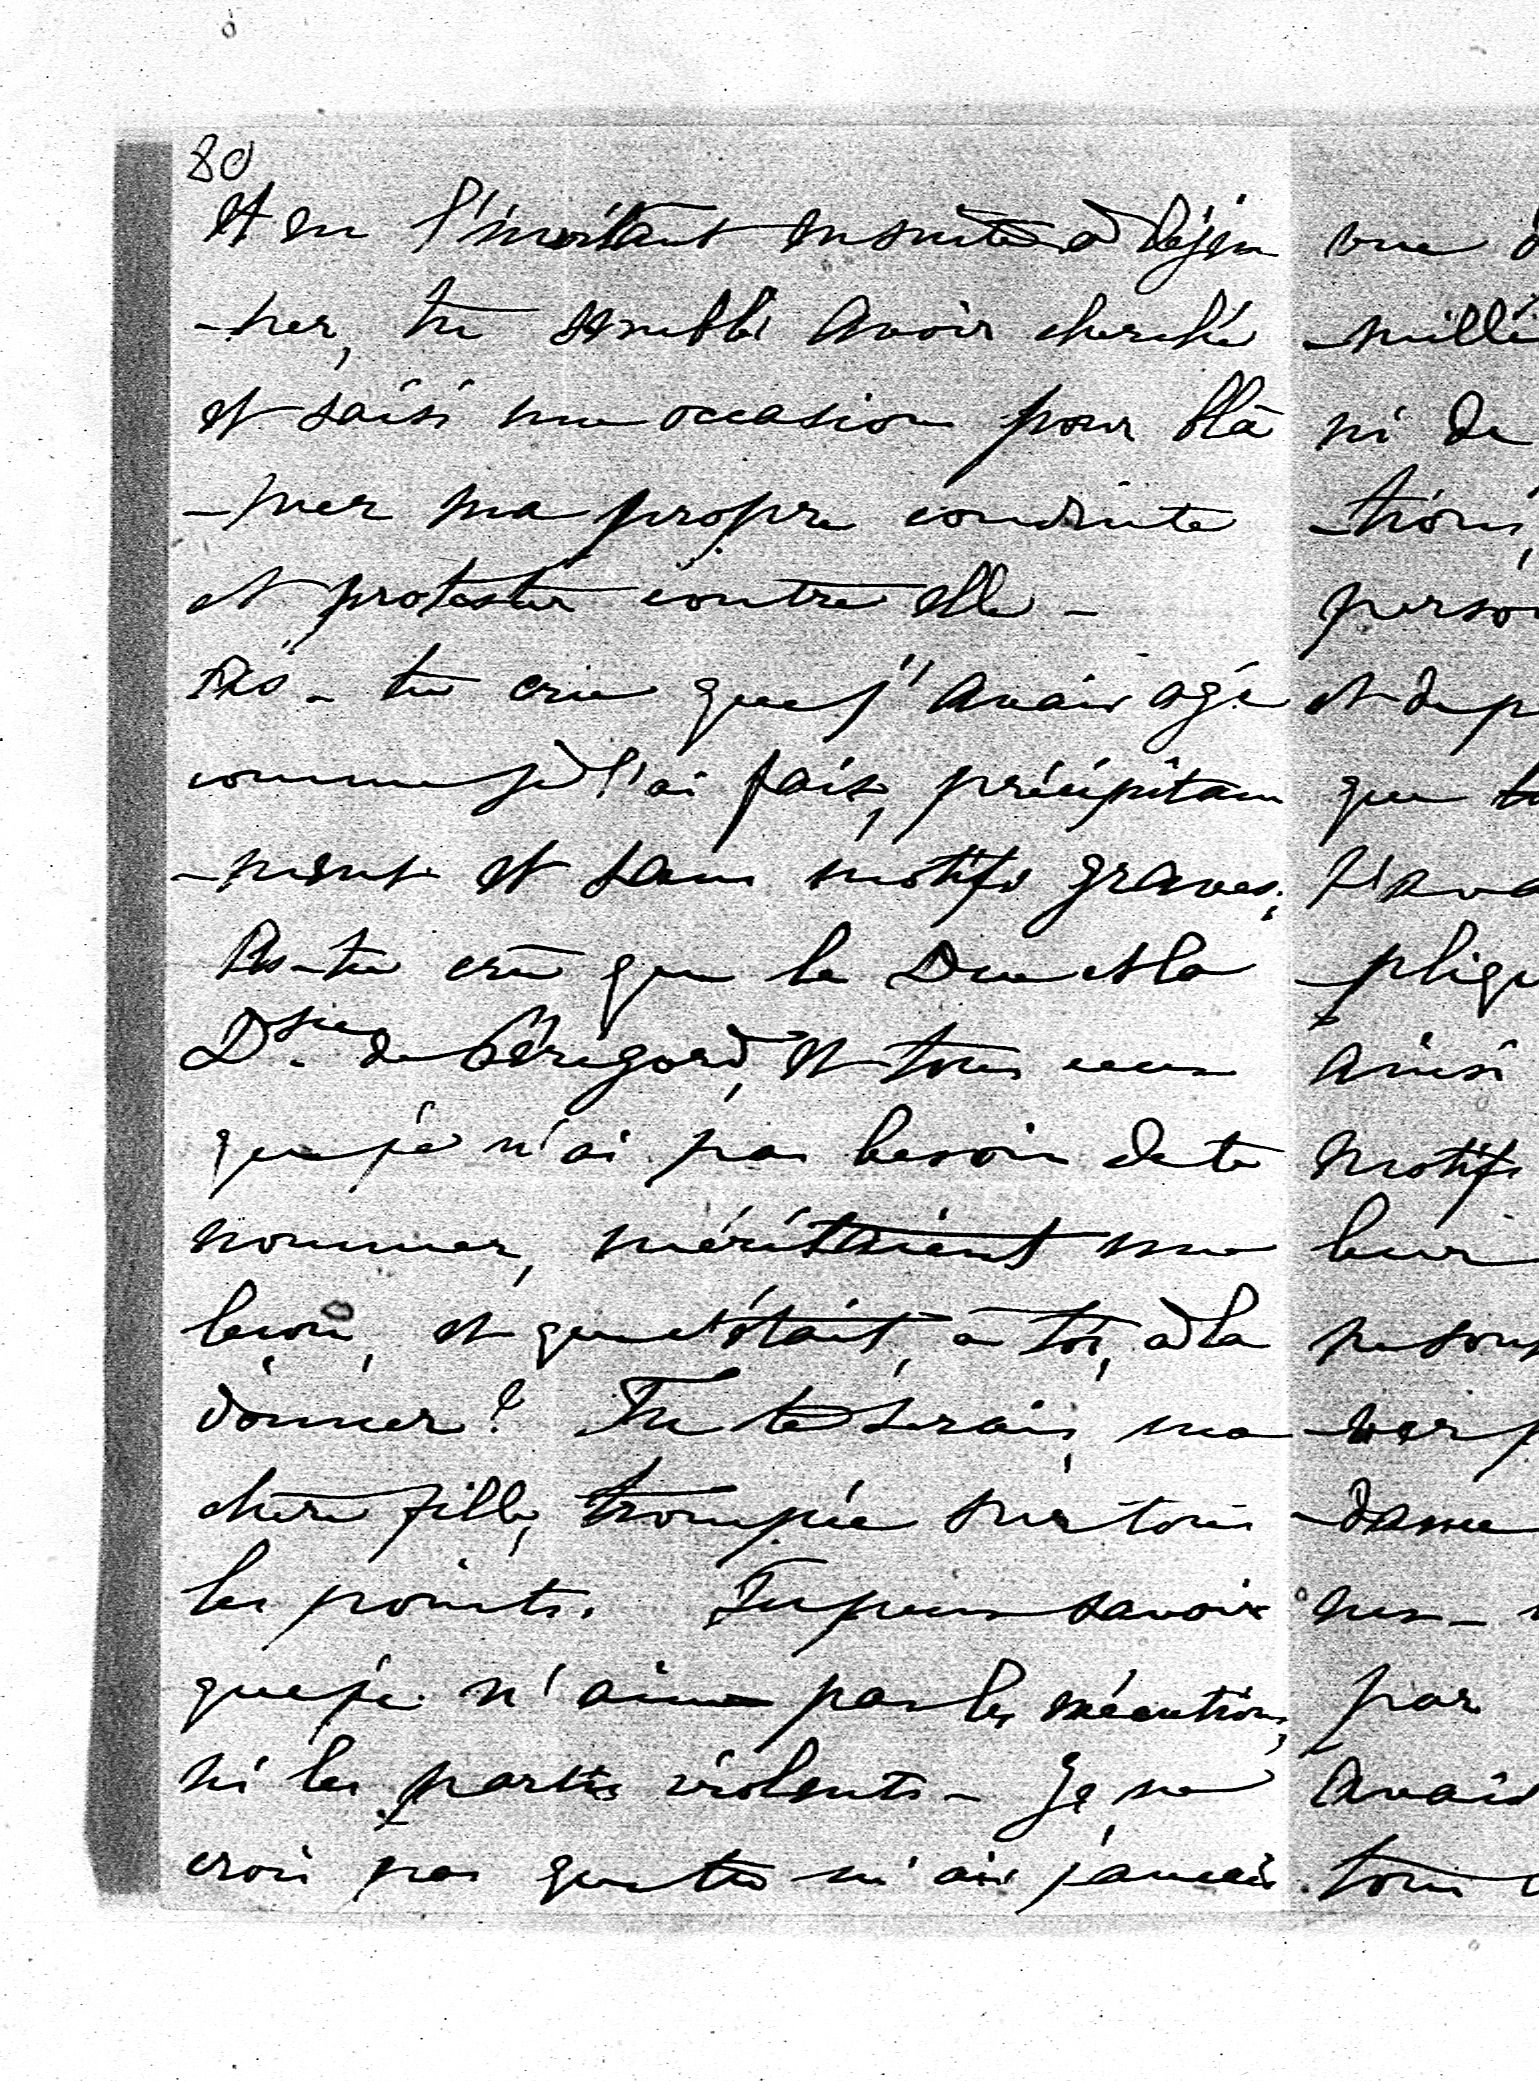 80
et en l'invitant ensuite à déjeu
-ner, tu semble avoir cherché
et saisi une occasion pour blâ
-mer ma propre conduite
et protester contre elle -
As-tu cru que j'avais agi
comme je l'ai fait, précipitam
-ment et sans motifs graves;
As-tu cru que le Duc et la
Dsse de Périgord, et tous ceux
que je n'ai pas besoin de te
nommer, méritaient une
leçon, et que c'était, à toi, à la
donner? Tu te serais, ma
chère fille, trompée sur tous
les points. Tu peux savoir
que je n'aime pas les exécutions,
ni les partis violents - Je ne
crois pas que tu m'ais jamais
vue
-millé
ni de
-tions,
perso
et de p
que tu
t'ava
-pliqu
ainsi
motifs
leur
ne sont
-ver p
-dame
nes -
par
avais
tous